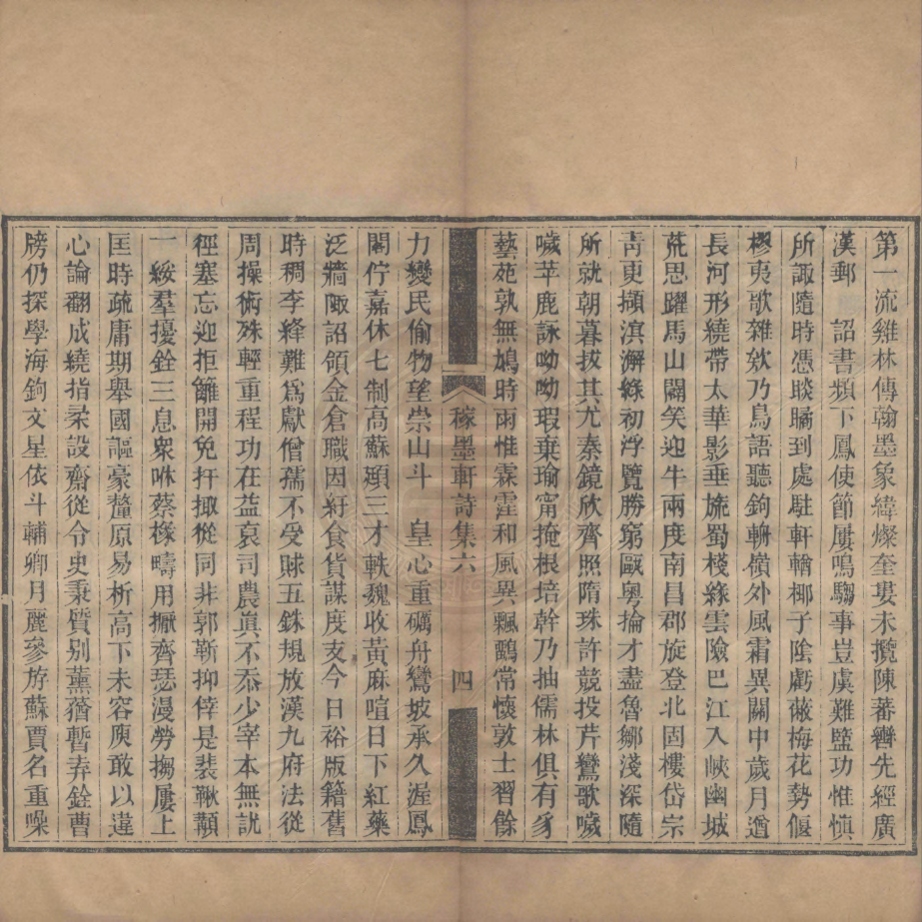 第一流雞林傳翰墨象緯燦奎婁未攬陳蕃轡先經廣
漢郵　詔書頻下鳳使節屢鳴騶事豈虞難監功惟慎
所諏隨時憑睒矋到處駐軒輶椰子陰虧蔽梅花勢偃
樛夷歌雜欸乃鳥語聽鉤輈嶺外風霜異關中歲月遒
長河形繞帶太華影垂旒蜀棧緣雲險巴江入峽幽城
荒思躍馬山闢笑迎牛兩度南昌郡旋登北固樓岱宗
靑更擷溟澥綠初浮覽勝窮甌粵掄才盡魯鄒淺深隨
所就朝暮拔其尤秦鏡欣齊照隋珠許競投芹鸞歌噦
噦苹鹿詠呦呦瑕棄瑜甯掩根培幹乃抽儒林俱有豸
藝苑孰無鳩時雨惟霖霔和風異飄飀常懷敦士習餘
稼墨軒詩集六　四
力變民偷物望崇山斗　皇心重礪舟鸞坡承久渥鳳
閣佇嘉休七制高蘇頲三才軼魏收黃麻喧日下紅藥
泛牆陬詔領金倉職因紆食貨謀度支今日裕版籍舊
時稠李絳難爲獻僧孺不受賕五銖規放漢九府法從
周操術殊輕重程功在益裒司農眞不忝少宰本無訧
徑塞忘迎拒籬開免扞掫從同非郭靳抑倖是裴鞦顜
一綏羣擾銓三息眾咻蔡樣疇用撅齊瑟漫勞搊屢上
匡時疏庸期舉國謳豪釐原易析高下未容庾敢以違
心論翻成繞指柔設齋從令史秉質別薰蕕暫弄銓曹
牓仍探學海鉤文星依斗輔卿月麗參斿蘇賈名重噪